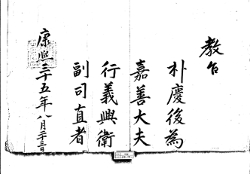 教旨
朴慶後為
嘉善大夫
行義興衛
副司直者
康熙三十五年八月二十二日